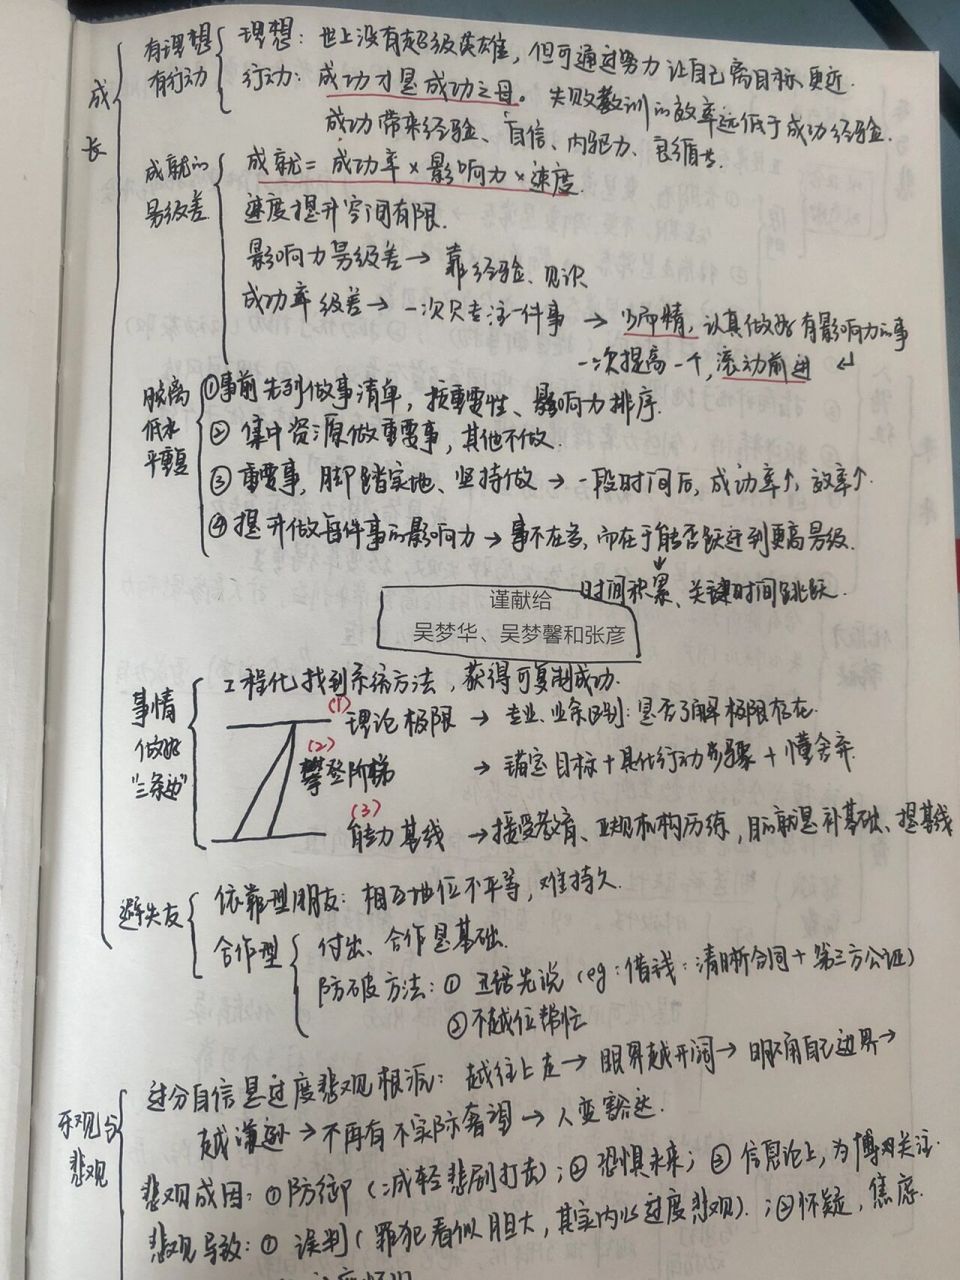 成长
有理想 有行动
理想：世上没有超级英雄，但可通过努力让自己离目标更近.
行动：成功才是成功之母。失败教训的效率远低于成功经验.
成功带来经验、自信、内驱力、良循环
成就的量级差
成就=成功率×影响力×速度.
速度提升空间有限.
影响力量级差→靠经验、见识
成功率级差→一次只专注一件事→少而精，认真做好有影响力的事
一次提高一个，滚动前进
脱离低水平重复
①事前先列做事清单，按重要性、影响力排序.
②集中资源做重要事，其他不做.
③重要事，脚踏实地、坚持做→一段时间后，成功率↑，效率↑.
④提升做每件事的影响力→事不在多，而在于能否跃迁到更高量级.
时间积累、关键时间跳跃.
谨献给
吴梦华、吴梦馨和张彦
事情做好"三条边"
工程化找到系统方法，获得可复制成功.
(1)理论极限→专业、业余区别：是否了解极限存在.
(2)攀登阶梯→锚定目标+具化行动步骤+懂舍弃.
(3)能力基线→接受教育、正规机构历练，目的就是补基础、提基线
避失友
依靠型朋友：相互地位不平等，难持久.
合作型
付出、合作是基础.
防破方法：①丑话先说（eg：借钱：清晰合同+第三方公证）
②不越位帮忙
乐观与悲观
过分自信是过度悲观根源：越往上走→眼界越开阔→明确自己边界→
越谦逊→不再有不实际奢望→人变豁达.
悲观成因：①防御（减轻悲剧打击）；②恐惧未来；③信息论上，为博取关注.
悲观导致：①误判（罪犯看似胆大，其实内心过度悲观）.；②怀疑，焦虑.